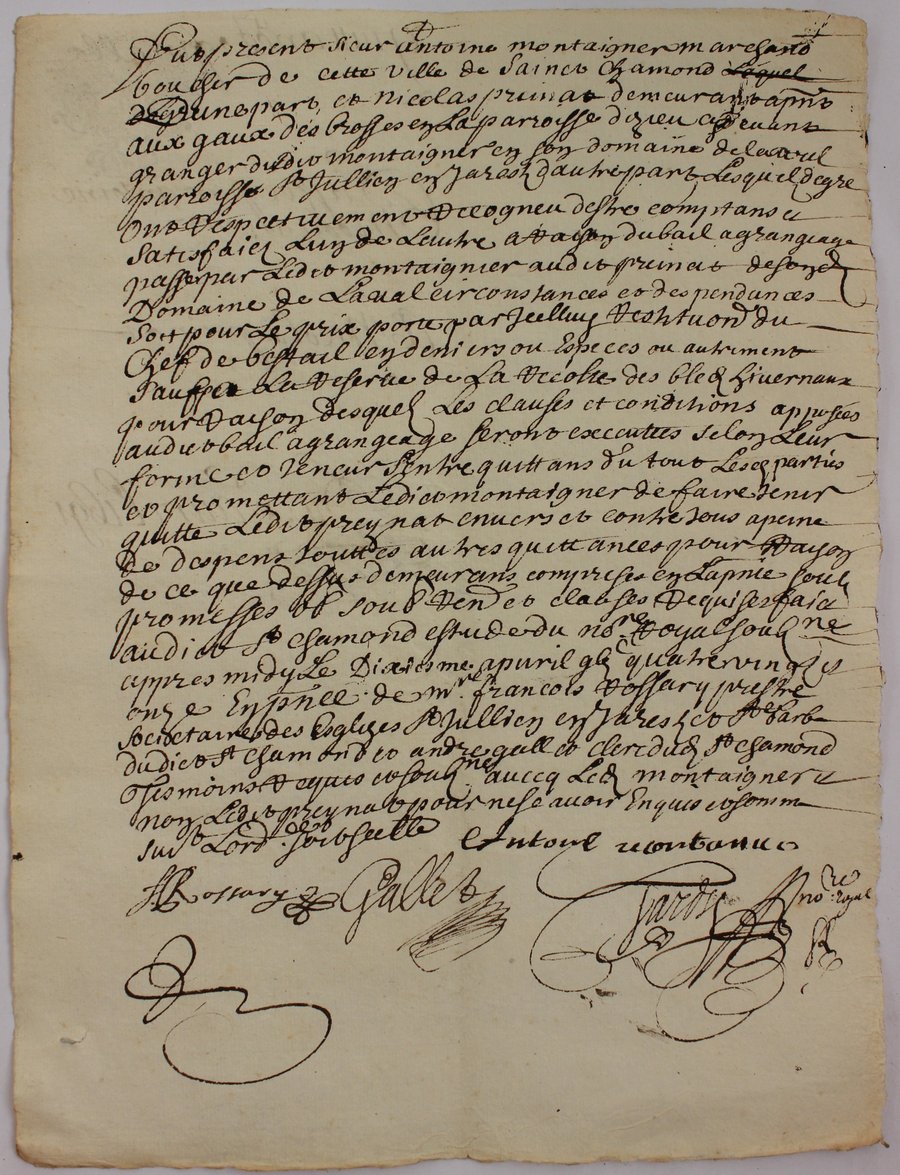 Fut present sieur Antoine montaigner marchand
boucher de cette ville de Sainct chamond Lequel
d'une part, et Nicolas prinat demeurant apnt
aux gaux des brosses en La parroisse dizieu cy devant
granger dudict montaigner en son domaine de laval
parroisse St Jullien en Jarest d'autre part Lesquel de gre
ont Respectivement Recogneu destre comptans et
satisfaicz Lun de Lautre a Raison du bail a grangeage
passe par Ledict montaignier audict prinat de son d
Domaine de Laval circonstances et despendances
soit pour Le prix porte par Icelluy Restituon du
Chef de bestail en deniers ou Especes ou autrement
sauf La Reserve de La Recolte des bledz hivernaux
pour Raison desquelz Les clauses et conditions apposees
audict bail a grangeage seront executtees selon Leur
forme et teneur sentre quittans du tout Lesd parties
et promettant Ledict montaigner de faire tenir
quitte Ledict preynat envers et contre tous a peine
de despens touttes autres quittances pour Raison
de ce que dessus demeurans comprises en La pnte soub
promesses obl soub Ren et clauses Requises faict
audict St chamond estude du nore Royal soubne
appres midy Le Dixiesme apvril gbc quatre vingtz
onze En pnce de mre francois Rossary prestre
societaire des Esglizes St Jullien en Jarestz et Ste barbe
dudict St chamond et andre gallet clerc dud St chamond
tesmoins Requis et soubne avecq Led montaigner et
non Ledict preynat pour ne scavoir Enquis et somme
suivt Lord soit scelle
Antoine montanier
F Rossary Gallet
Jardy nore royal